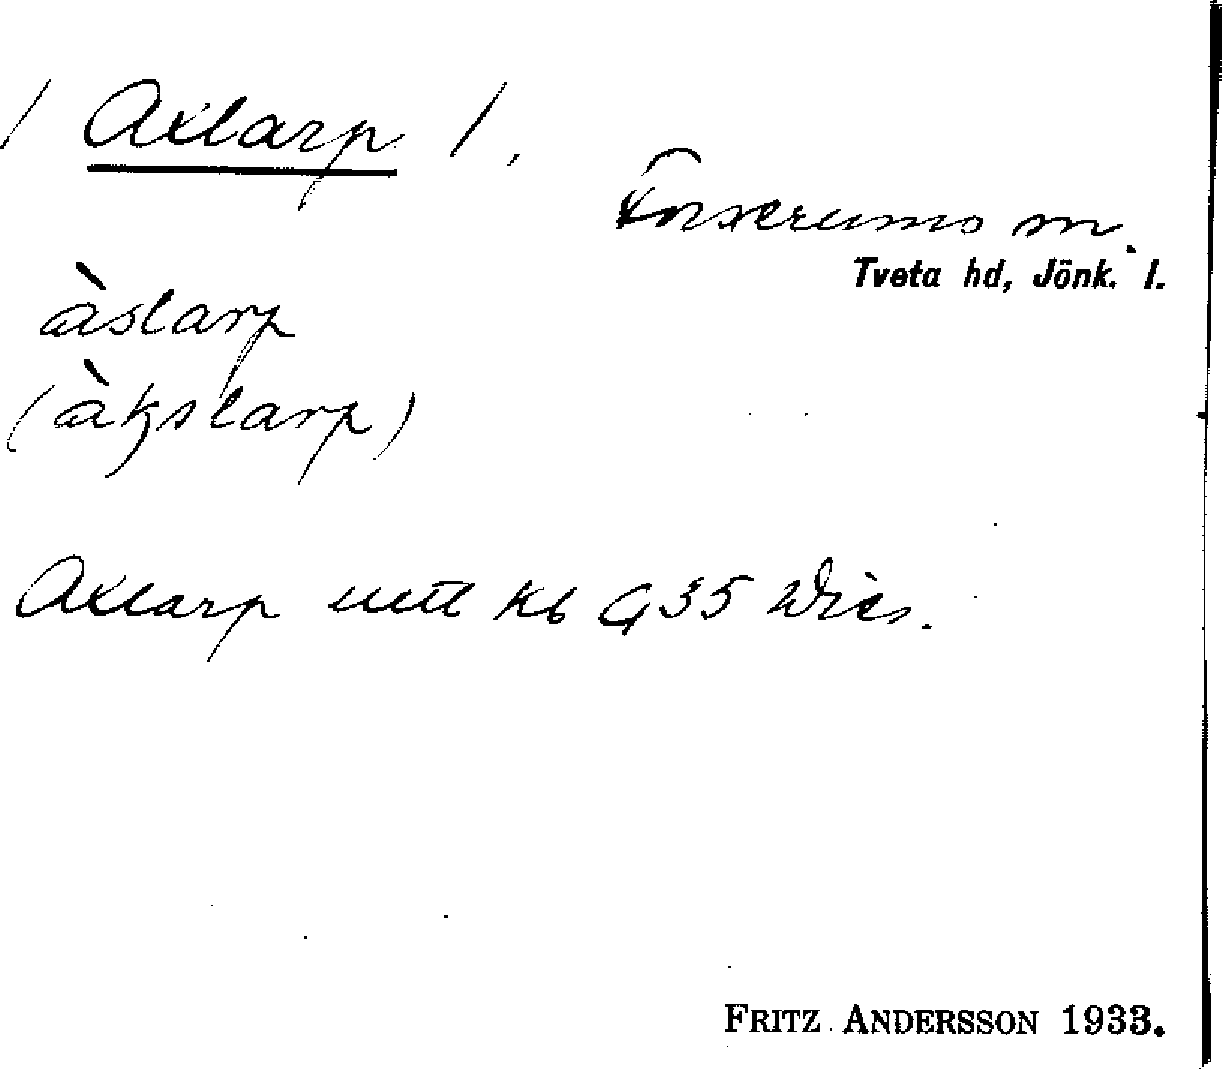 / Axlarp /.
Forserums sn.
Tveta hd, Jönk. l.
àslarp
(àkslarp)
Axlarp utt kb G35
FRITZ ANDERSSON 1933.